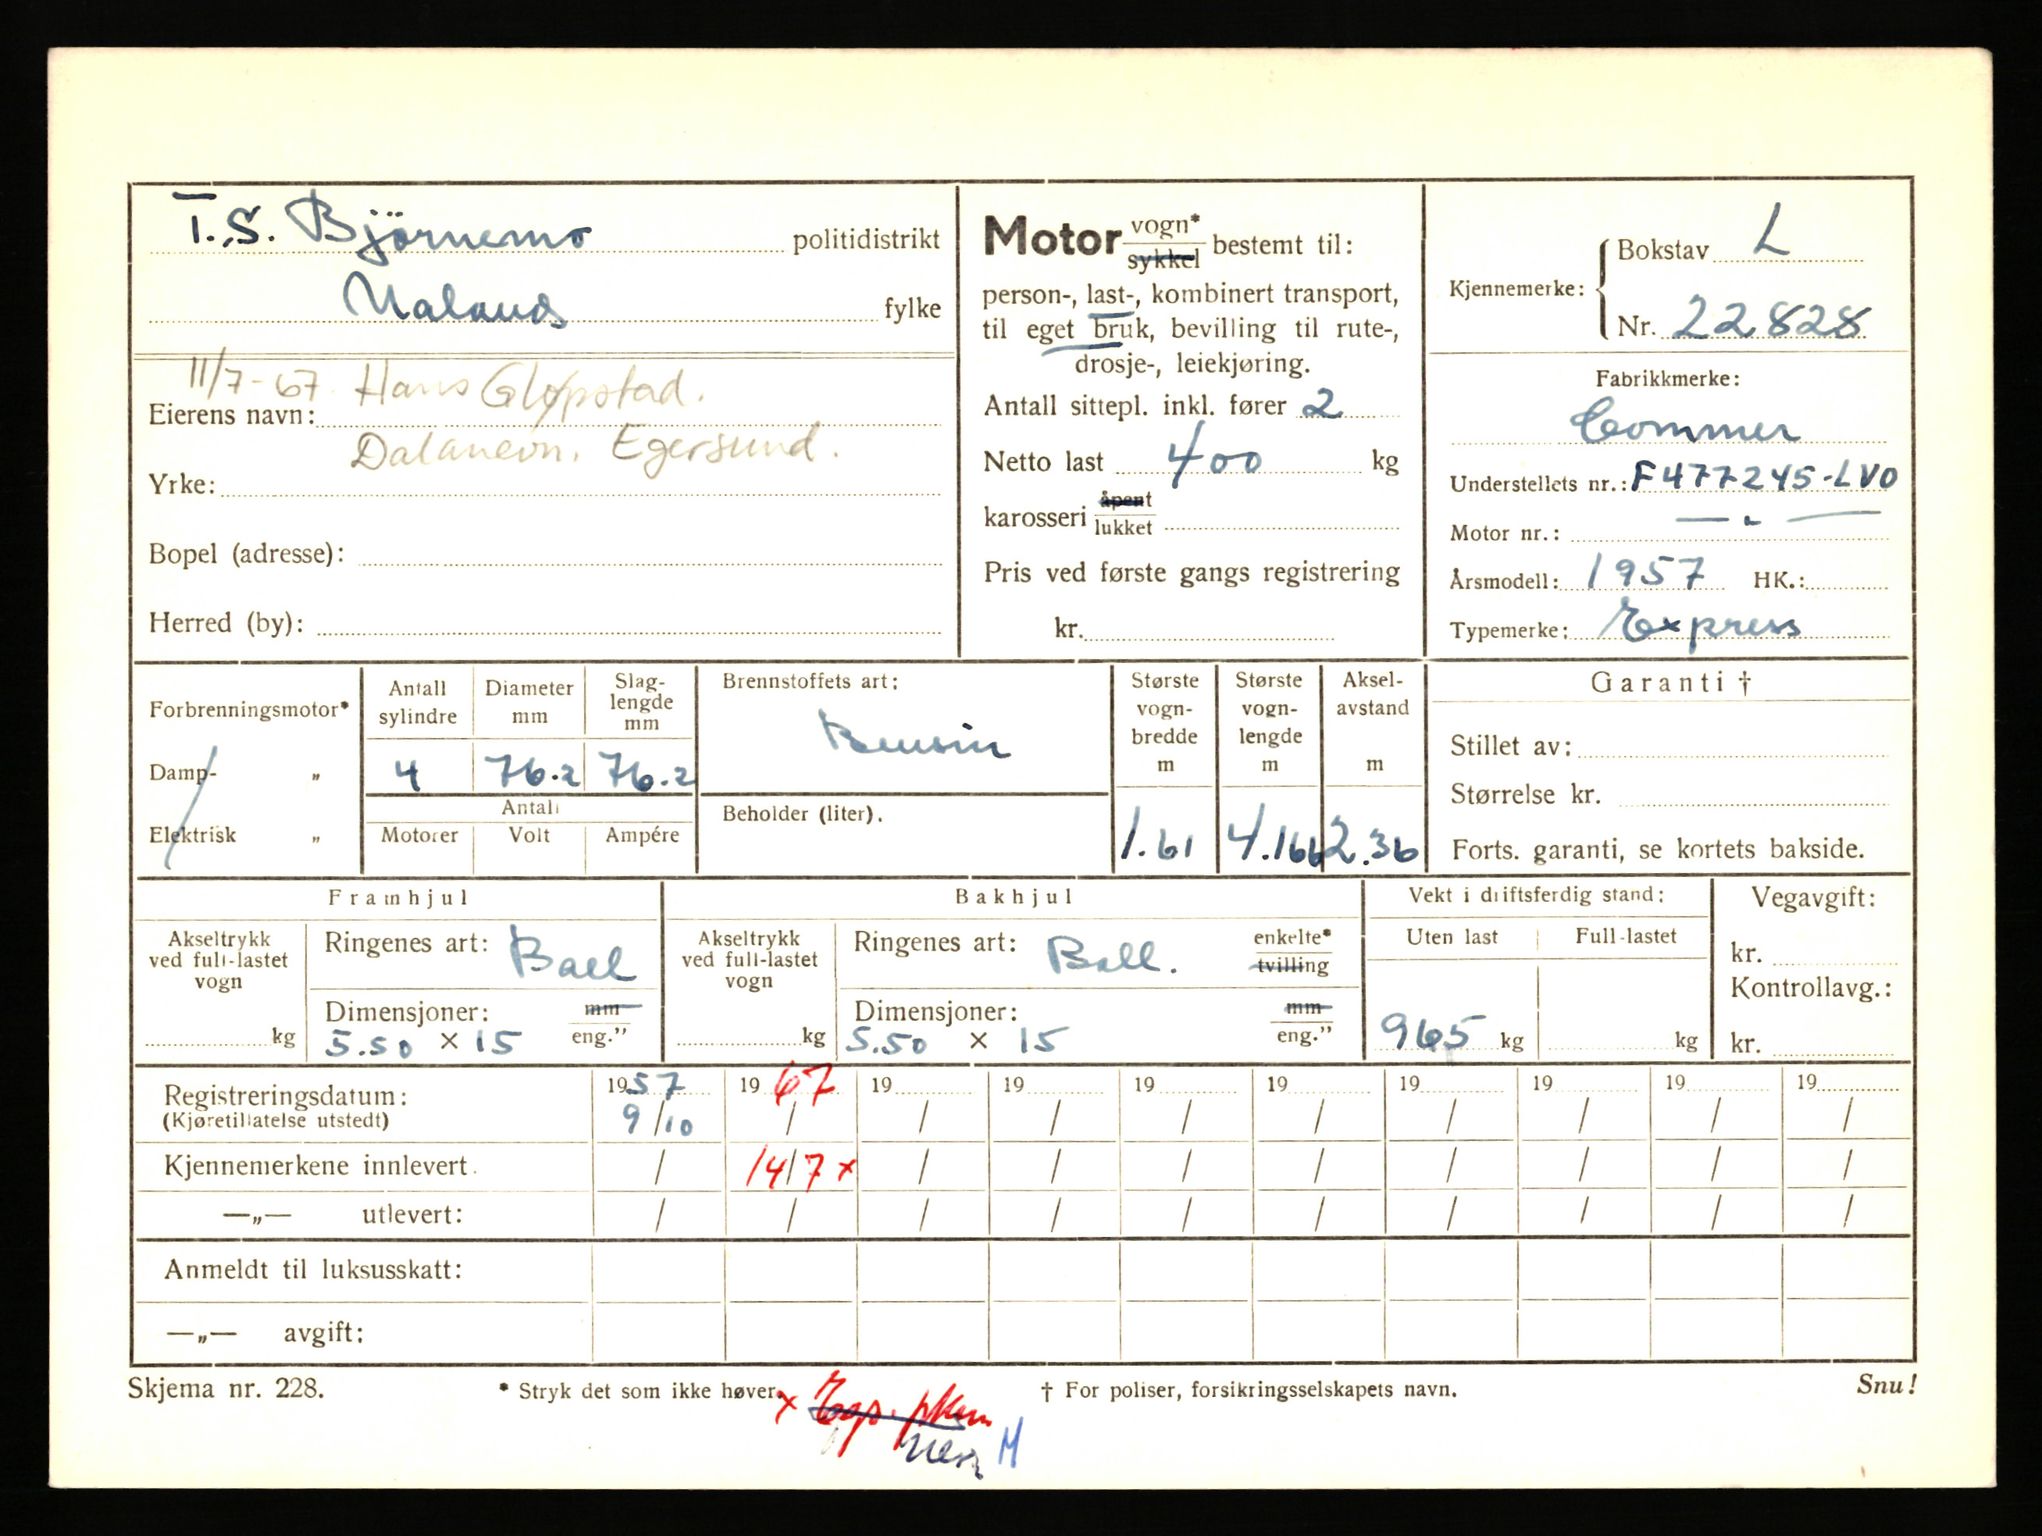 T.S. Björnemo politidistrikt
Ualand fylke
11/7-67. Hans Gløpstad.
Eierens navn:
Dalanevn. Egersund.
Yrke:
Bopel (adresse):
Herred (by):
Motor vogn* sykkel bestemt til:
person-, last-, kombinert transport,
til eget bruk, bevilling til rute-,
drosje-, leiekjøring.
Antall sittepl. inkl. fører 2
Netto last 400 kg
karosseri åpent lukket
Pris ved første gangs registrering
kr.
Kjennemerke: Bokstav L
Nr. 22828
Fabrikkmerke:
Commer
Understellets nr.: F477245-LVO
Motor nr.: — " —
Årsmodell: 1957 HK.:
Typemerke: Express
Forbrenningsmotor*
Damp- „
Elektrisk „
Antall sylindre
4
Diameter mm
76.2
Slag-lengde mm
76.2
Antall
Motorer Volt Ampére
Brennstoffets art:
Bensin
Beholder (liter).
Største vogn-bredde m
1.61
Største vogn-lengde m
4.166
Aksel-avstand m
2.36
Garanti †
Stillet av:
Størrelse kr.
Forts. garanti, se kortets bakside.
Framhjul
Akseltrykk ved full-lastet vogn
kg
Ringenes art: Ball
Dimensjoner: mm eng."
5.50 × 15
Bakhjul
Akseltrykk ved full-lastet vogn
kg
Ringenes art: Ball. enkelte* tvilling
Dimensjoner: mm eng."
5.50 × 15
Vekt i driftsferdig stand:
Uten last Full-lastet
965 kg kg
Vegavgift:
kr.
Kontrollavg.:
kr.
Registreringsdatum: 1957 1967 19 19 19 19 19 19 19 19
(Kjøretillatelse utstedt) 9/10 / / / / / / / / /
Kjennemerkene innlevert. / 14/7 x / / / / / / / /
—„— utlevert: / / / / / / / / / /
Anmeldt til luksusskatt:
—„— avgift:
Skjema nr. 228. * Stryk det som ikke høver. † For poliser, forsikringsselskapets navn. Snu!
x
M